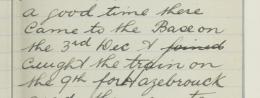 a good time there
Came to the Base on
the 3rd Dec & joined
caught the train on
the 9th for Hazebrouck